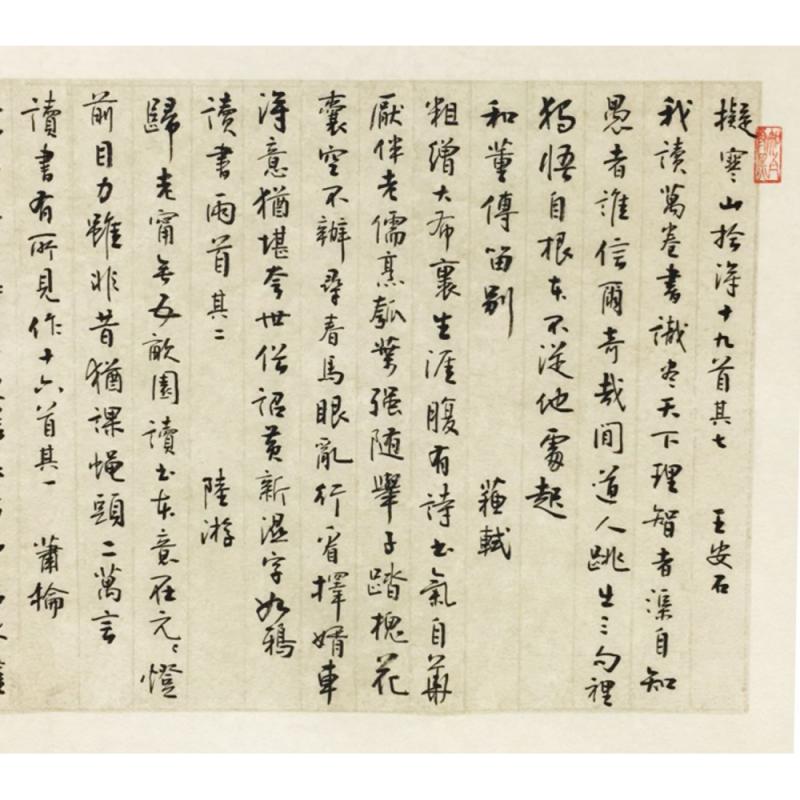 擬寒山拾得十九首其七 王安石
我讀萬卷書識盡天下理智者渠自知
愚者誰信爾奇哉閒道人跳出三句裡
獨悟自根本不從他處起
和董傳留別 蘇軾
粗繒大布裹生涯腹有詩書氣自華
厭伴老儒烹瓠葉強随舉子踏槐花
囊空不辦尋春馬眼亂行看擇婿車
得意猶堪夸世俗詔黃新濕字如鴉
讀書兩首其二 陸游
歸老甯無五畝園讀書本意在元〻燈
前目力雖非昔猶課蠅頭二萬言
讀書有所見作十六首其一 蕭掄